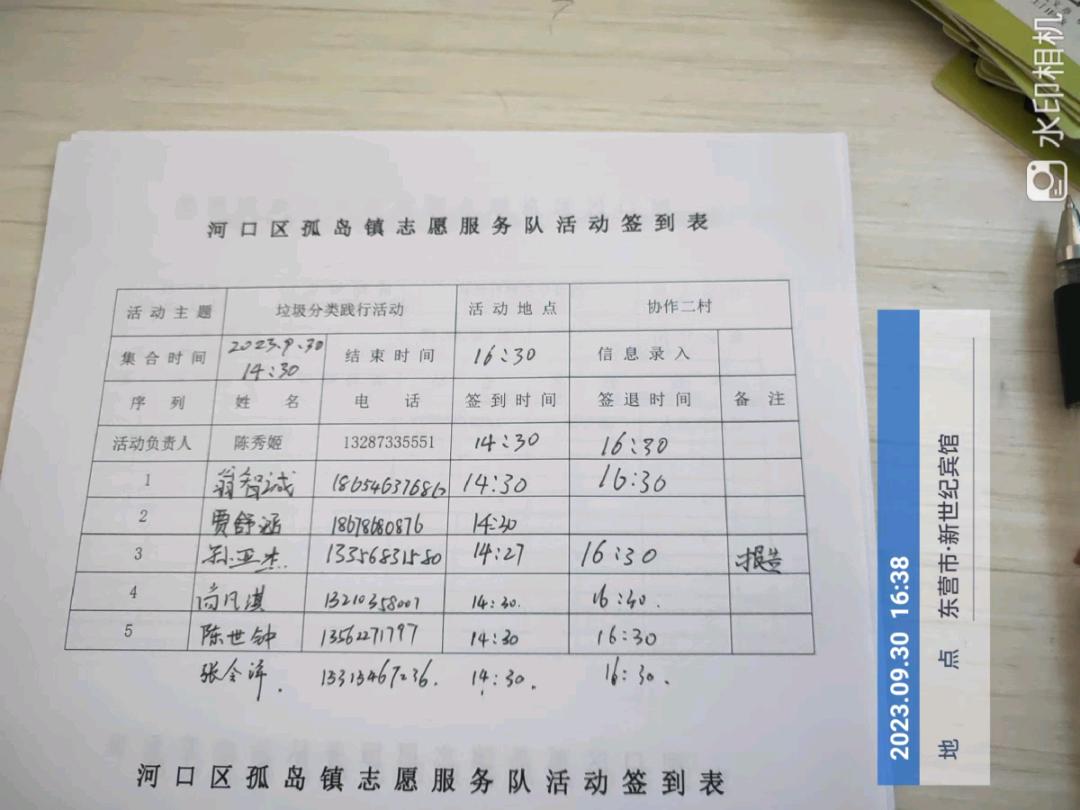 河口区孤岛镇志愿服务队活动签到表
活动主题 垃圾分类践行活动 活动地点 协作二村
集合时间 2023.9.30 14:30 结束时间 16:30 信息录入
序列 姓名 电话 签到时间 签退时间 备注
活动负责人 陈秀姬 13287335551 14:30 16:30
1 翁智诚 18654637686 14:30 16:30
2 贾舒涵 18678680876 14:20
3 孙亚杰 13356831580 14:27 16:30 报告
4 尚凡淇 13210358001 14:30. 16:30.
5 陈世钟 13562271797 14:30 16:30
14:30. 16:30.
河口区孤岛镇志愿服务队活动签到表
水印相机
2023.09.30 16:38
地点 东营市·新世纪宾馆